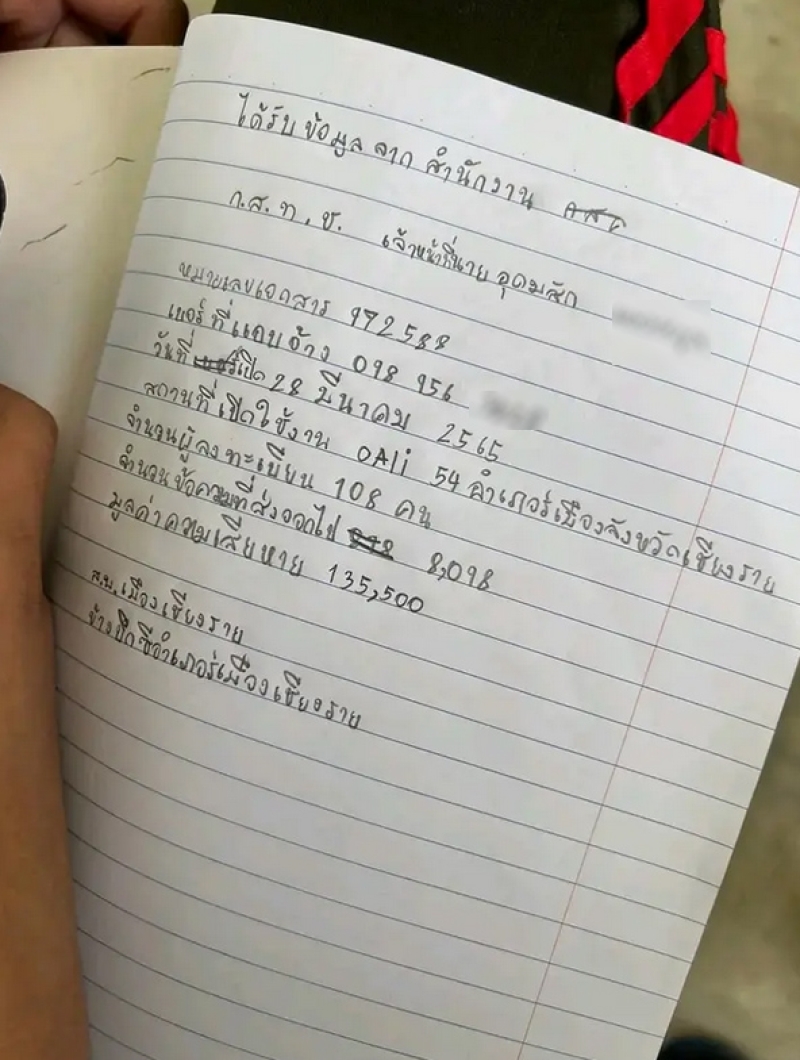 ได้รับข้อมูล จาก สำนักงาน
ก.ส.ท.ช. เจ้าหน้าที่นาย อุดมสัก
หมายเลขเอกสาร 972588
เบอร์ที่แอบอ้าง 098 956
วันที่ เปิด 28 มีนาคม 2565
สถานที่เปิดใช้งาน 54 อำเภอร์เมืองจังหวัดเชียงราย
จำนวนผู้ลงทะเบียน 108 คน
จำนวนข้อความที่ส่งออกไป 8,098
มูลค่าความเสียหาย 135,500
ส.ภ.เมืองเชียงราย
ข้างบิ๊กซีอำเภอร์เมืองเชียงราย